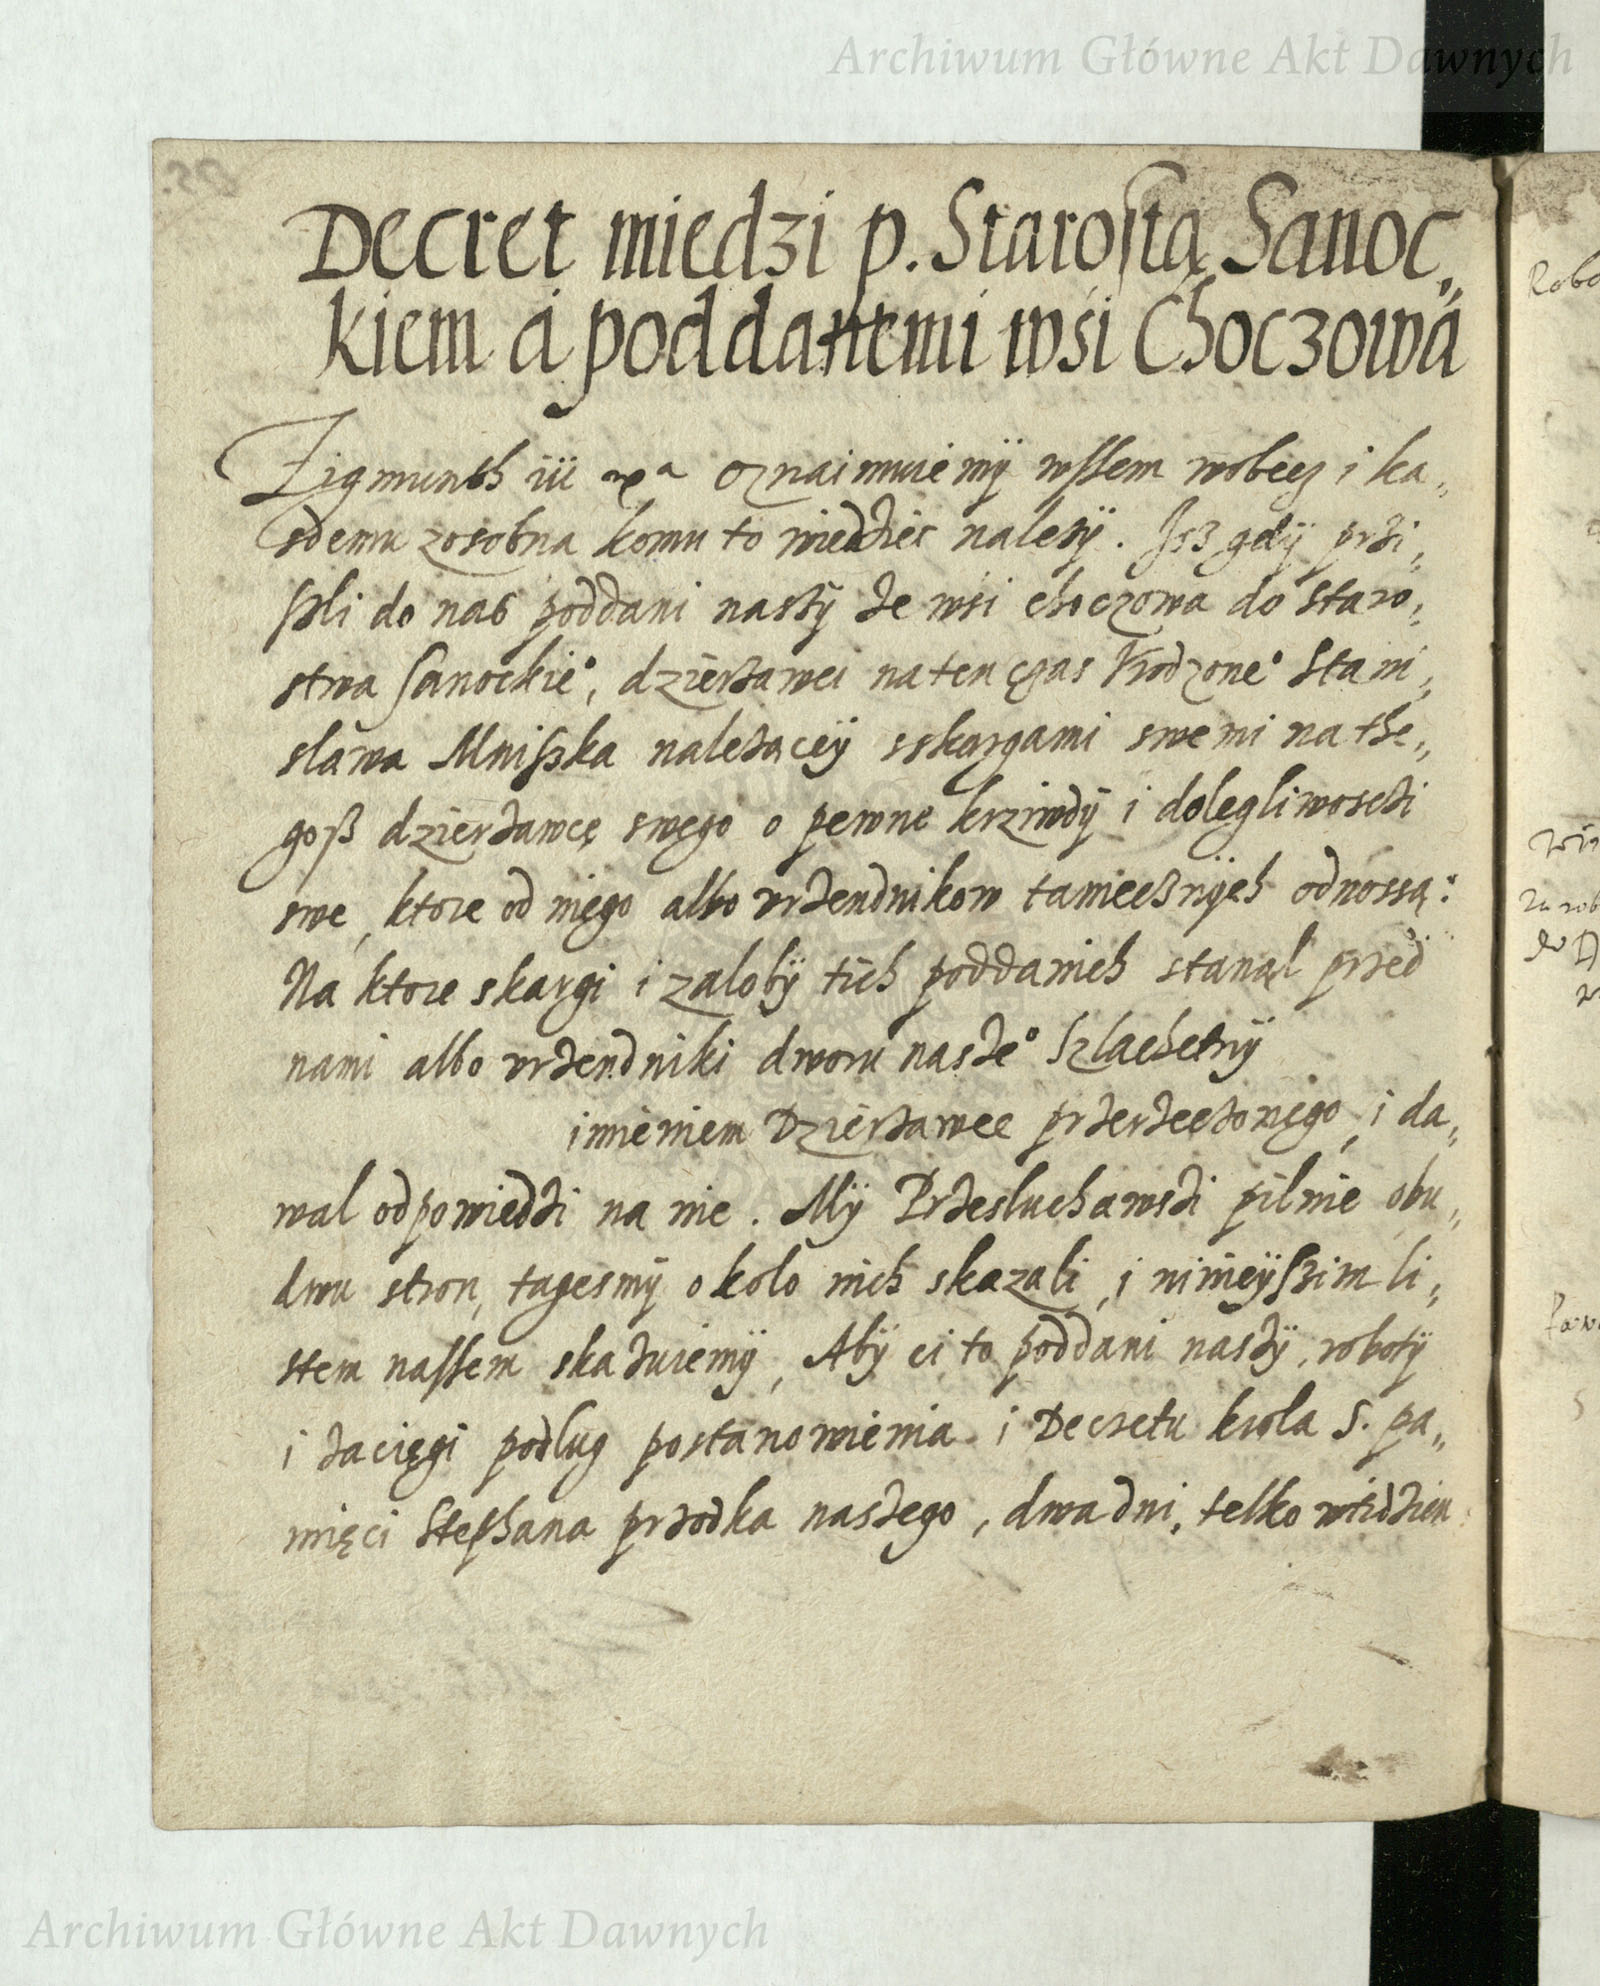 Archiwum Główne Akt Dawnych
Decret miedzi p. Starostą Sanoc„
kiem á poddanemi wśi Choczowá
Zigmunth iii oznaimuiemÿ wssem wobecz i ka„
sdemu zosobna komu to wiedzieć należÿ. Isz gdÿ przi„
sli do nas poddani naszÿ że wsi choczowa do Staro„
stwa Sanockie°, dzierżawci na ten czas Vrodzone° Stani„
sláwa Mniszka należącÿ sskargami swemi na the„
goß dzierżawcę swego o pewne krziwdÿ i dolegliwosczi
swe, ktore od niego albo vrzendnikow tameesnÿch odnossą:
Na ktore skargi i zalobÿ tich poddanich stanąl przed
nami albo vrzendniki dworu nasze° Szlachetnÿ
imieniem Dzierżawce przerzeczonego, i da„
wal odpowiedzi na nie. Mÿ Przesluchawszi pilnie obu„
dwu stron, tagesmÿ okolo nich skazali, i ninieÿszim li„
stem nassem skazuiemÿ, Abÿ ci to poddani naszÿ, robotÿ
i zaciegi podlug postanowienia i Decretu krola S. pa„
mięci Stephana przodka naszego, dwa dni, telko wtidzien
Archiwum Główne Akt Dawnych